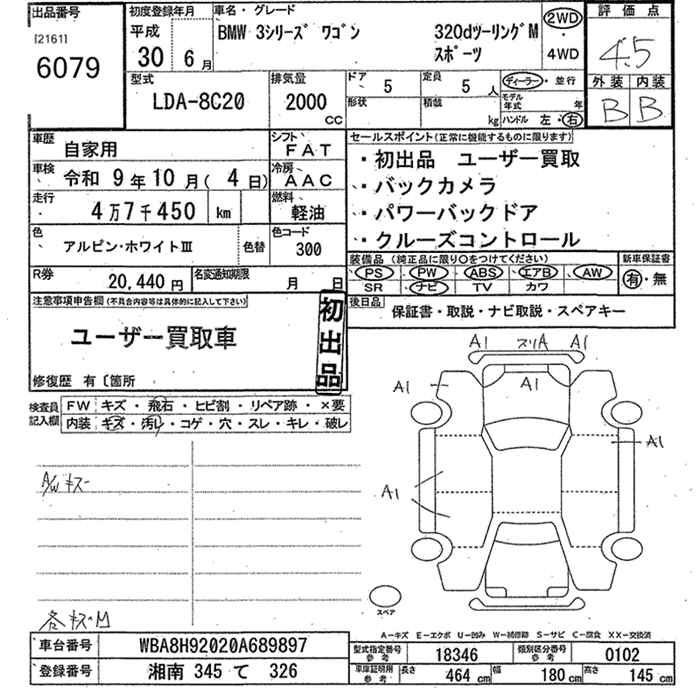 出品番号
[2161]
6079
初度登録年月
平成
30年 6月
車名・グレード
BMW 3シリーズ ワゴン 320dツーリングM
スポーツ
2WD
・
4WD
評価点
4.5
外装 内装
B B
型式
LDA-8C20
排気量
2000
CC
ドア
5
定員
5人
形状
積載
kg
ディーラー・並行
モデル年式
年
ハンドル 左・右
車歴
自家用
シフト
FAT
車検
令和 9年10月( 4日)
冷房
AAC
走行
4万7千450 km
燃料
軽油
色
アルピン・ホワイトⅢ
色替
色コード
300
R券
20,440円
名変通知期限
月 日
セールスポイント(正常に機能するものに限ります)
・初出品 ユーザー買取
・バックカメラ
・パワーバックドア
・クルーズコントロール
装備品(純正品に限り○をつけてください)
PS PW ABS エアB AW
SR ナビ TV カワ
新車保証書
有・無
注意事項申告欄(不具合内容等は具体的に記入して下さい)
ユーザー買取車
初出品
修復歴 有〔箇所
後日品
保証書・取説・ナビ取説・スペアキー
検査員
記入欄
FW キズ・飛石・ヒビ割・リペア跡・×要
内装 キズ・汚レ・コゲ・穴・スレ・キレ・破レ
A/Wキズ
各キズM
A1 スリA A1
A1 A1
A1
A1
スペア
A-キズ E-エクボ U-凹み W-補修跡 S-サビ C-腐食 XX-交換済
車台番号
WBA8H92020A689897
登録番号
湘南 345 て 326
型式指定番号
参考
18346
類別区分番号
参考
0102
車庫証明用
参考
長さ
464cm
幅
180cm
高さ
145cm